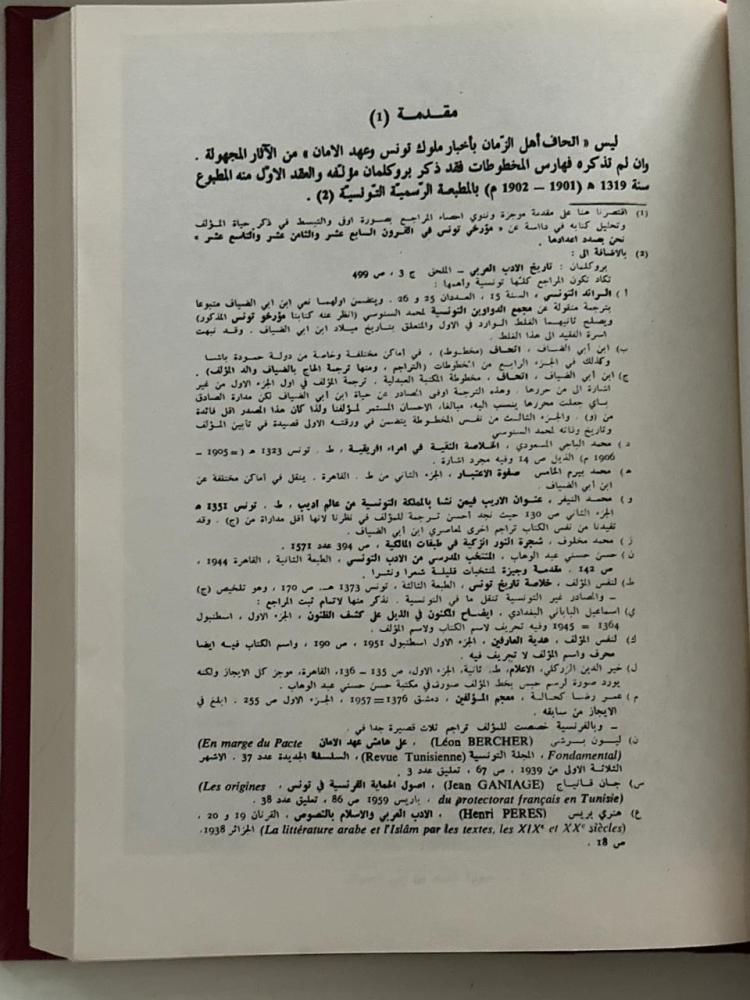 مقـدمـة (1)
ليس « اتحاف أهل الزّمان بأخبار ملوك تونس وعهد الامان » من الآثار المجهولة .
وان لم تذكره فهارس المخطوطات فقد ذكر بروكلمان مؤلفه والعقد الاوّل منه المطبوع
سنة 1319 ه (1901 — 1902 م) بالمطبعة الرّسميّة التونسيّة (2) .
(1) اقتصرنا هنا على مقدمة موجزة وننوي احصاء المراجع بصورة اوفى والتبسط في ذكر حياة المؤلف
وتحليل كتابه في دراسة عن « مؤرخي تونس في القرون السابع عشر والثامن عشر والتاسع عشر »
نحن بصدد اعدادها .
(2) بالاضافة الى :
بروكلمان : تاريخ الادب العربي – الملحق ج 3 ، ص 499
تكاد تكون المراجع كلها تونسية وأهمها :
أ ) الرائد التونسي ، السنة 15 ، العددان 25 و 26 . ويتضمن اولهما نعي ابن ابي الضياف متبوعا
بترجمة منقولة عن مجمع الدواوين التونسية لمحمد السنوسي (انظر عنه كتابنا مؤرخو تونس المذكور)
ويصلح ثانيهما الغلط الوارد في الاول والمتعلق بتاريخ ميلاد ابن ابي الضياف . وقد نبهت
اسرة الفقيد الى هذا الغلط .
ب) ابن أبي الضياف ، اتحاف (مخطوط) ، في أماكن مختلفة وخاصة من دولة حمودة باشا
وكذلك في الجزء الرابع من المخطوطات (التراجم ، ومنها ترجمة الحاج بالضياف والد المؤلف) .
ج) ابن أبي الضياف ، اتحاف ، مخطوطة المكتبة العبدلية . ترجمة المؤلف في اول الجزء الاول من غير
اشارة الى من حررها . وهذه الترجمة اوفى المصادر عن حياة ابن أبي الضياف لكن مدارة الصادق
باي جعلت محررها ينسب اليه، مبالغا، الاحسان المستمر لمؤلفنا ولذا كان هذا المصدر اقل فائدة
من (و) . والجزء الثالث من نفس المخطوطة يتضمن في ورقته الاولى قصيدة في تأبين المؤلف
وتاريخ وفاته لمحمد السنوسي
د ) محمد الباجي المسعودي ، الخلاصة النقية في امراء افريقية ، ط . تونس 1323 ه (= 1905 –
1906 م) الذيل ص 14 وفيه مجرد اشارة .
ه) محمد بيرم الخامس صفوة الاعتبار ، الجزء الثاني من ط . القاهرة . ينقل في أماكن مختلفة عن
ابن أبي الضياف .
و ) محمد النيفر ، عنوان الاريب فيمن نشا بالمملكة التونسية من عالم اديب ، ط . تونس 1351 ه
الجزء الثاني ص 130 حيث نجد أحسن ترجمة للمؤلف في نظرنا لانها أقل مداراة من (ج) . وقد
تفيدنا من نفس الكتاب تراجم اخرى لمعاصري ابن أبي الضياف .
ز ) محمد مخلوف ، شجرة النور الزكية في طبقات المالكية ، ص 394 عدد 1571 .
ن ) حسن حسني عبد الوهاب ، المنتخب المدرسي من الادب التونسي ، الطبعة الثانية ، القاهرة 1944 ،
ص 142 . مقدمة وجيزة لمنتخبات قليلة شعرا ونثرا .
ط) لنفس المؤلف ، خلاصة تاريخ تونس ، الطبعة الثالثة ، تونس 1373 هـ، ص 170 ، وهو تلخيص (ج)
– والمصادر غير التونسية تنقل ما في التونسية . نذكر منها لاتمام ثبت المراجع :
ي) اسماعيل الباباني البغدادي ، ايضاح المكنون في الذيل على كشف الظنون ، الجزء الاول ، اسطنبول
1364 = 1945 وفيه تحريف لاسم الكتاب ولاسم المؤلف .
ك) لنفس المؤلف ، هدية العارفين ، الجزء الاول اسطنبول 1951 ، ص 190 ، واسم الكتاب فيه ايضا
محرف واسم المؤلف لا تحريف فيه .
ل) خير الدين الزركلي، الاعلام، ط. ثانية، الجزء الاول، ص 135 – 136، القاهرة، موجز كل الايجاز ولكنه
يورد صورة لرسم حبس بخط المؤلف صورف في مكتبة حسن حسني عبد الوهاب .
م ) عمر رضا كحالة ، معجم المؤلفين ، دمشق 1376=1957 ، الجزء الاول ص 255 . ابلغ في
الايجاز من سابقه .
– وبالفرنسية خصصت للمؤلف تراجم ثلاث قصيرة جدا في .
ن) ليون برشي (Léon BERCHER) ، على هامش عهد الامان (En marge du Pacte
Fondamental) ، المجلة التونسية (Revue Tunisienne) ، السلسلة الجديدة عدد 37 . الاشهر
الثلاثة الاولى من 1939 ، ص 67 ، تعليق عدد 3 .
س) جان قانياج (Jean GANIAGE) ، اصول الحماية الفرنسية في تونس ، (Les origines
du protectorat français en Tunisie) ، باريس 1959 ص 86 ، تعليق عدد 38 .
ع) هنري بريس (Henri PERES) ، الادب العربي والاسلام بالنصوص ، القرنان 19 و 20 ،
(La littérature arabe et l'Islâm par les textes, les XIXᵉ et XXᵉ siècles) الجزائر 1938،
ص 18 .